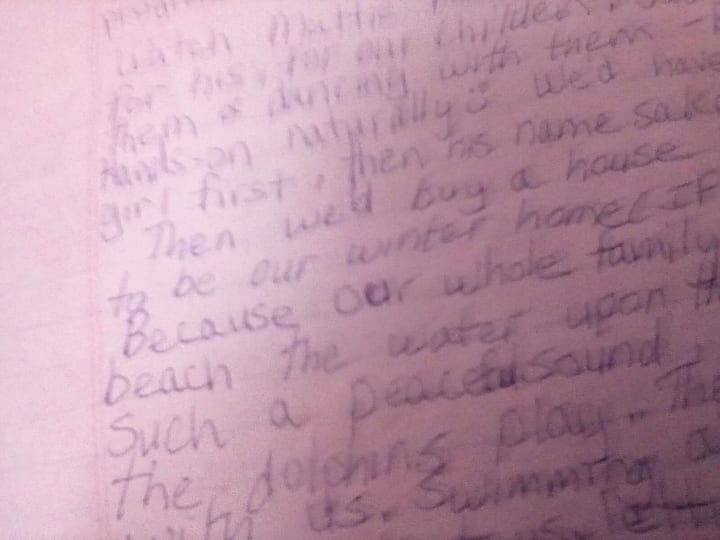 watch Mattie
for his, for our children,
them & dancing with them -
hands-on naturally We'd have
girl first, then his name sake
Then we'd buy a house
to be our winter home (IF
Because our whole family
beach the water upon th
Such a peaceful sound,
the dolphins play.. The
with us. Swimming a